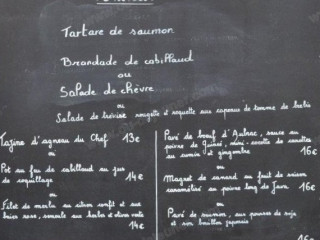 Tartare de saumon
Brandade de cabillaud
ou
Salade de chèvre
ou
Salade de trévise rougette et roquette sur copeaux de tomme de brebis
Tagine d'agneau du Chef 13€
ou
Pot au feu de cabillaud au jus
de coquillage 14€
ou
Filet de merlu au citron confit et sur
14€
Pavé de boeuf d'Aubrac, sauce au
poivre de Guinée, mini-cocotte de carottes
au cumin et gingembre 16€
ou
Magret de canard au fruit de saison
caramélisé au poivre long de Java 16€
ou
Pavé de saumon, aux pousses de soja
et son bouillon japonais
16€